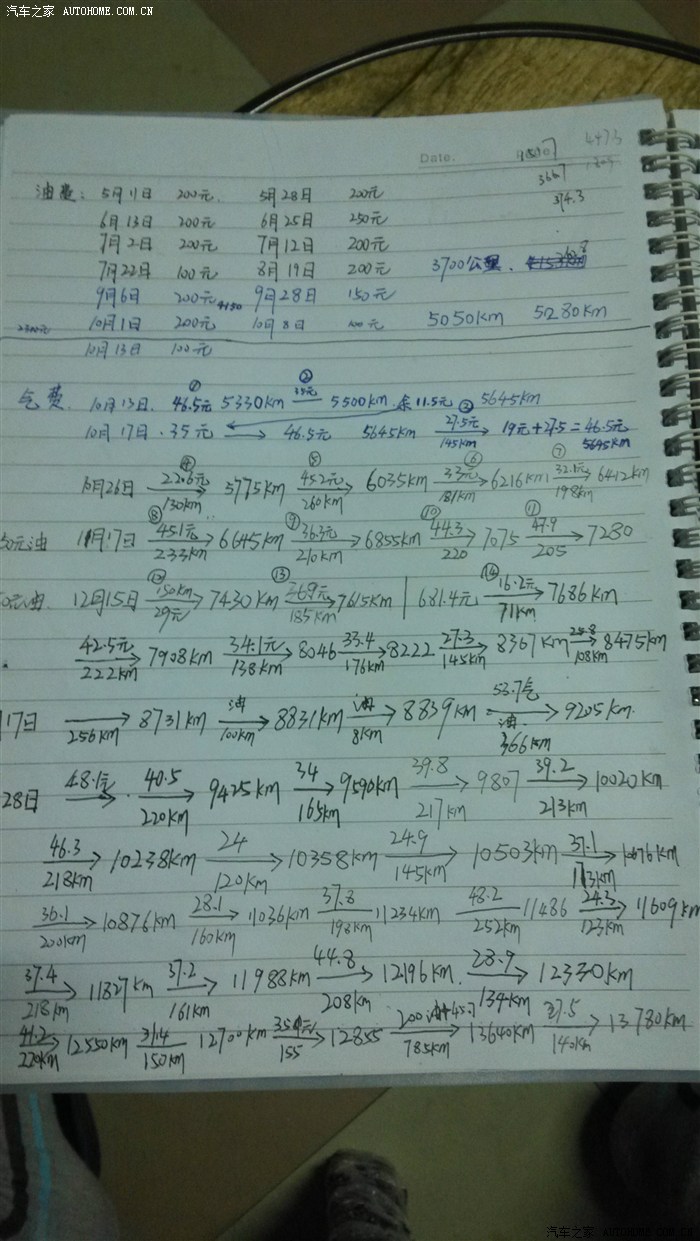 汽车之家 AUTOHOME.COM.CN
Date.
4473
3667
374.3
油费: 5月11日 200元. 5月28日 200元
6月13日 200元 6月25日 250元
7月2日 200元 7月12日 200元
7月22日 100元 8月19日 200元 3700公里.
9月6日 200元 9月28日 150元
2300元 10月1日 200元 10月8日 100元 5050km 5280km
10月13日 100元
气费 10月13日. ① 46.5元 5330km ② 35元 5500km.余11.5元 ③ 5645km
10月17日.35元 → 46.5元 5645km 27.5元 145km → 19元+27.5=46.5元 5645km
10月26日 ④ 22.6元 130km → 5775km ⑤ 45.2元 260km → 6035km ⑥ 33元 181km → 6216km ⑦ 32.1元 198km → 6412km
0元油 11月17日 ⑧ 45.1元 233km → 6645km ⑨ 36.3元 210km → 6855km ⑩ 44.3 220 → 7075 ⑪ 47.9 205 → 7280
0元油. 12月15日 ⑫ 150km 29元 → 7430km ⑬ 36.9元 185km → 7615km | 681.4元 ⑭ 16.2元 71km → 7686km
42.5元 222km → 7908km 34.1元 138km → 8046 33.4 176km → 8222 27.3 145km → 8367km 108km → 8475km
月17日 256km → 8731km 油 100km → 8831km 油 8km → 8839km 53.7气 油 366km → 9205km.
28日 48.1元 → 40.5 220km → 9425km 34 165km → 9590km 39.8 217km → 9807 39.2 213km → 10020km
46.3 218km → 10238km 24 120km → 10358km 24.9 145km → 10503km 37.1 173km → 10676km
36.1 200km → 10876km 28.1 160km → 11036km 37.8 198km 11234km 48.2 252km 11486 24.3 123km → 11609km
37.4 218km → 11827km 37.2 161km → 11988km 44.8 208km → 12196km. 28.9 134km → 12330km
41.2 220km → 12550km 31.4 150km 12700km 155 → 12855 785km → 13640km 27.5 140km → 13780km
汽车之家 AUTOHOME.COM.CN